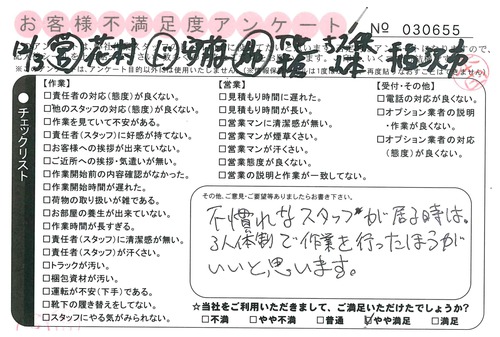 お客様不満足度アンケート
№ 030655
チェックリスト
【作業】
□責任者の対応(態度)が良くない。
□他のスタッフの対応(態度)が良くない。
□作業を見ていて不安がある。
□責任者(スタッフ)に好感が持てない。
□お客様への挨拶が出来ていない。
□ご近所への挨拶・気遣いが無い。
□作業開始前の内容確認がなかった。
□作業開始時間が遅れた。
□荷物の取り扱いが雑である。
□お部屋の養生が出来ていない。
□作業時間が長すぎる。
□責任者(スタッフ)に清潔感が無い。
□責任者(スタッフ)が汗くさい。
□トラックが汚い。
□梱包資材が汚い。
□運転が不安(下手)である。
□靴下の履き替えをしてない。
□スタッフにやる気がみられない。
【営業】
□見積もり時間に遅れた。
□見積もり時間が長い。
□営業マンに清潔感が無い。
□営業マンが煙草くさい。
□営業マンが汗くさい。
□営業態度が良くない。
□営業の説明と作業が一致してない。
【受付・その他】
□電話の対応が良くない。
□オプション業者の説明
・作業が良くない。
□オプション業者の対応
(態度)が良くない。
その他、ご意見・ご要望等ありましたらお書き下さい。
不慣れなスタッフが居る時は。
3人体制で作業を行ったほうが
いいと思います。
☆当社をご利用いただきまして、ご満足いただけたでしょうか?
□不満 □やや不満 □普通 ☑やや満足 □満足